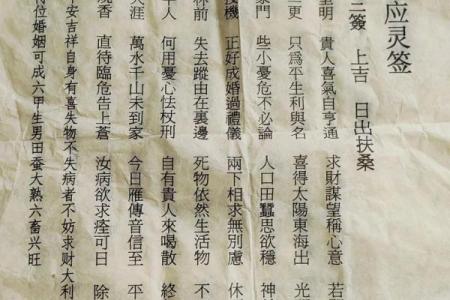 应灵签
三簽 上吉 日出扶桑
明 貴人喜氣自亨通 求財謀望稱心意 若
三更 只為平生利與名 喜得太陽東海出 光
豪門 些小憂危不必論 人口田蠶思欲穩 神
投機 正好成婚過禮儀 兩下相求無別慮 休
林前 失去蹤由在裏邊 死物依然生活物 不
人 何用憂心怯杖刑 自有貴人來喝散 終
天涯 萬水千山未到家 今日雁傳音信至 平
燒香 直待臨危告上蒼 汝病欲求痊可日 除
平安吉祥自身有喜失物不失病者不妨求財大利
位婚姻可成六甲生男田蚕大熟六畜兴旺